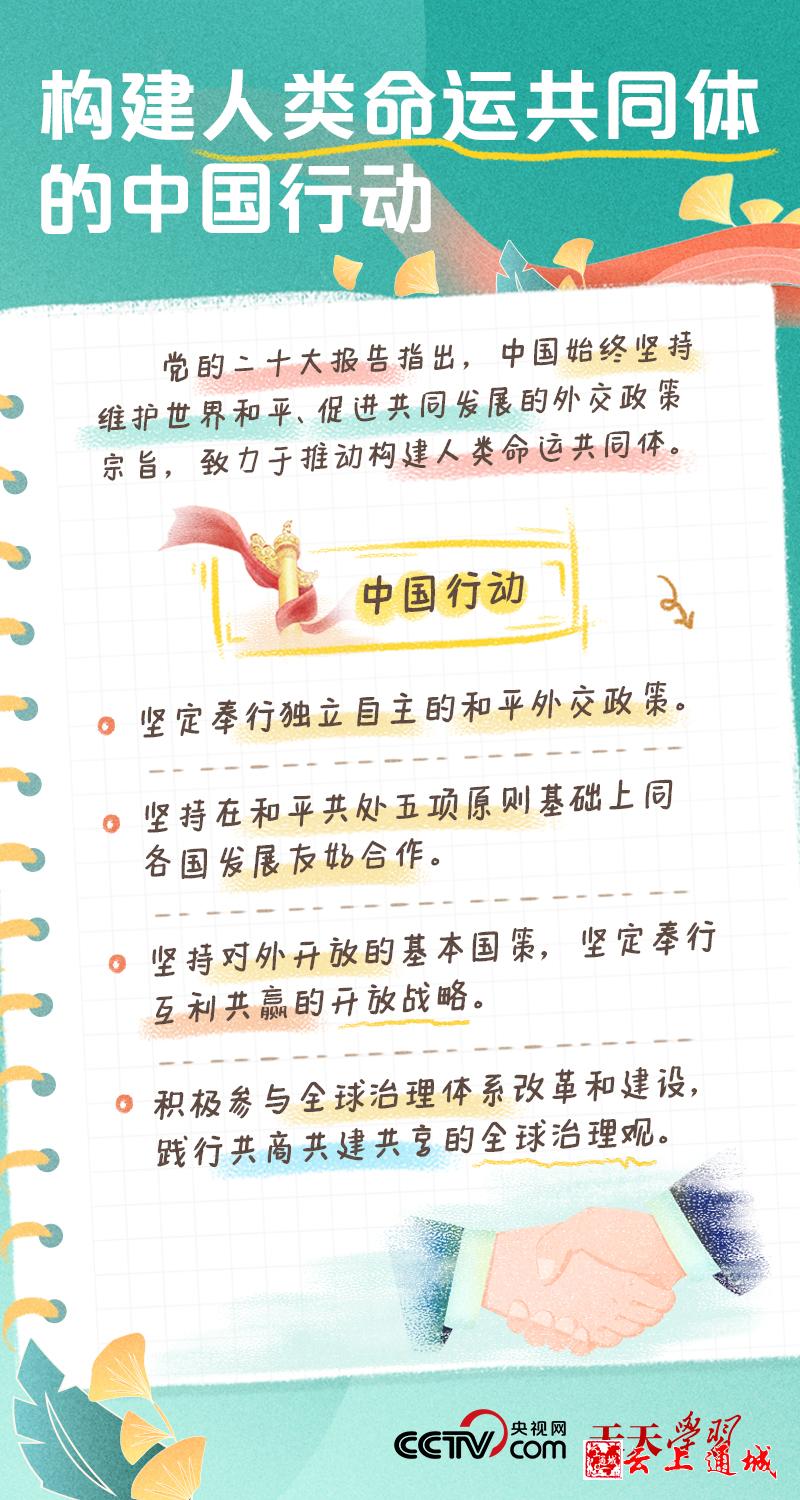 构建人类命运共同体
的中国行动
党的二十大报告指出，中国始终坚持
维护世界和平、促进共同发展的外交政策
宗旨，致力于推动构建人类命运共同体。
中国行动
坚定奉行独立自主的和平外交政策。
坚持在和平共处五项原则基础上同
各国发展友好合作。
坚持对外开放的基本国策，坚定奉行
互利共赢的开放战略。
积极参与全球治理体系改革和建设，
践行共商共建共享的全球治理观。
CCTV.com 央视网
天天学习
云上通城